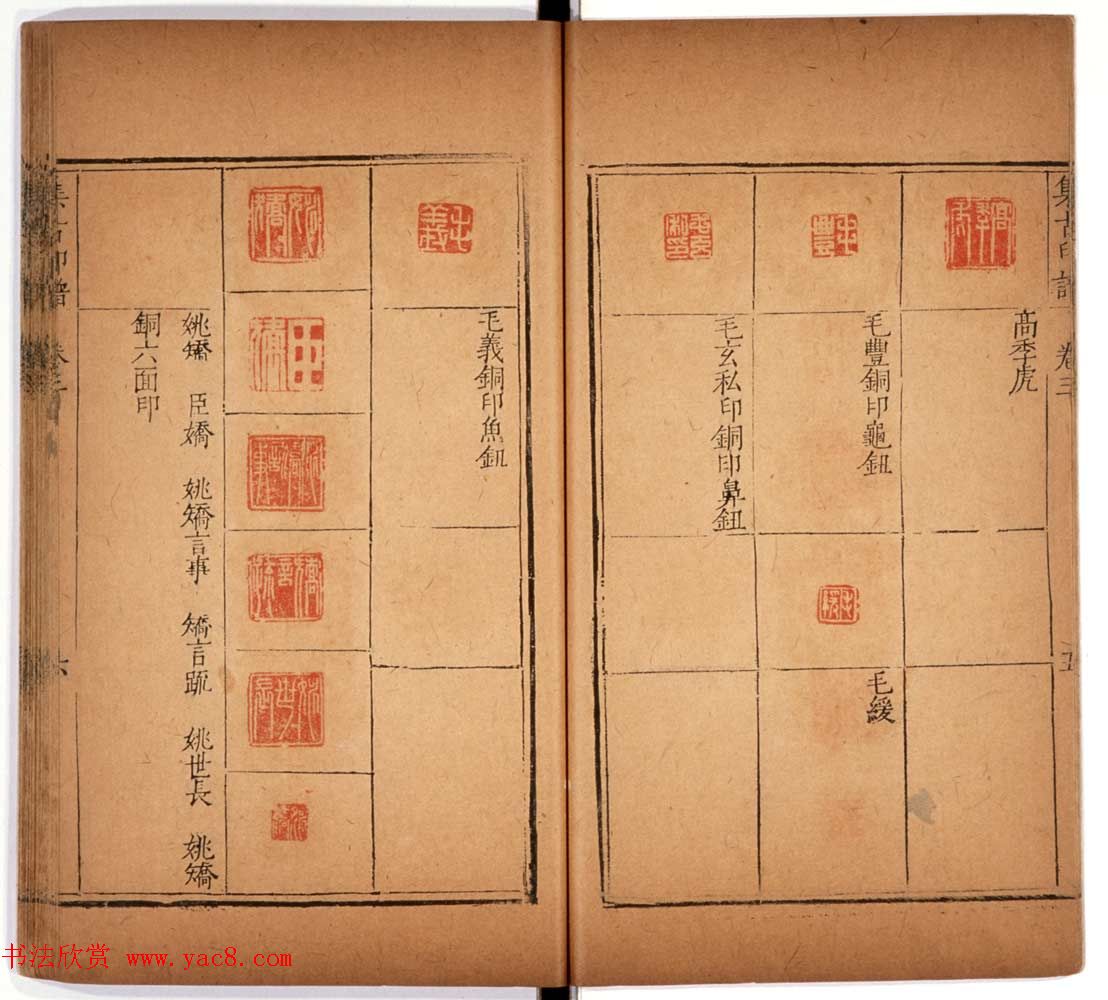 集古印譜
卷三
五
高季虎
毛豐銅印龜鈕
毛緩
毛玄私印銅印鼻鈕
毛義銅印魚鈕
姚矯 臣嬌 姚矯言事 矯言疏 姚世長 姚矯
銅六面印
集古印譜
六
书法欣赏 www.yac8.com